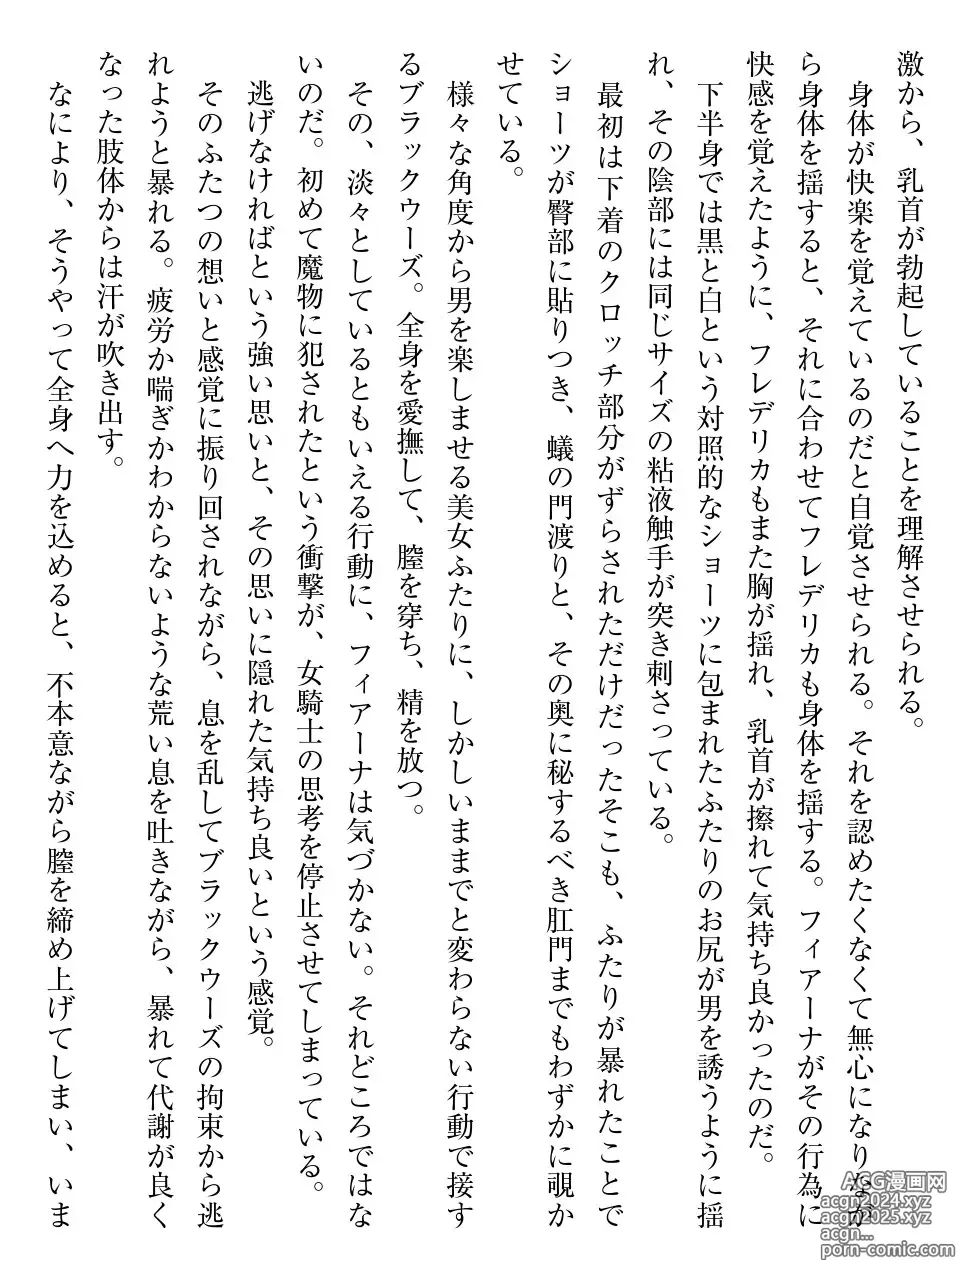 激から、乳首が勃起していることを理解させられる。
身体が快楽を覚えているのだと自覚させられる。それを認めたくなくて無心になりなが
ら身体を揺すると、それに合わせてフレデリカも身体を揺する。フィアーナがその行為に
快感を覚えたように、フレデリカもまた胸が揺れ、乳首が擦れて気持ち良かったのだ。
下半身では黒と白という対照的なショーツに包まれたふたりのお尻が男を誘うように揺
れ、その陰部には同じサイズの粘液触手が突き刺さっている。
最初は下着のクロッチ部分がずらされただけだったそこも、ふたりが暴れたことで
ショーツが臀部に貼りつき、蟻の門渡りと、その奥に秘するべき肛門までもわずかに覗か
せている。
様々な角度から男を楽しませる美女ふたりに、しかしいままでと変わらない行動で接す
るブラックウーズ。全身を愛撫して、膣を穿ち、精を放つ。
その、淡々としているともいえる行動に、フィアーナは気づかない。それどころではな
いのだ。初めて魔物に犯されたという衝撃が、女騎士の思考を停止させてしまっている。
逃げなければという強い思いと、その思いに隠れた気持ち良いという感覚。
そのふたつの想いと感覚に振り回されながら、息を乱してブラックウーズの拘束から逃
れようと暴れる。疲労か喘ぎかわからないような荒い息を吐きながら、暴れて代謝が良く
なった肢体からは汗が吹き出す。
なにより、そうやって全身へ力を込めると、不本意ながら膣を締め上げてしまい、いま
ACG漫画网
acgn2024.xyz
acgn2025.xyz
acgn...
porn-comic.com